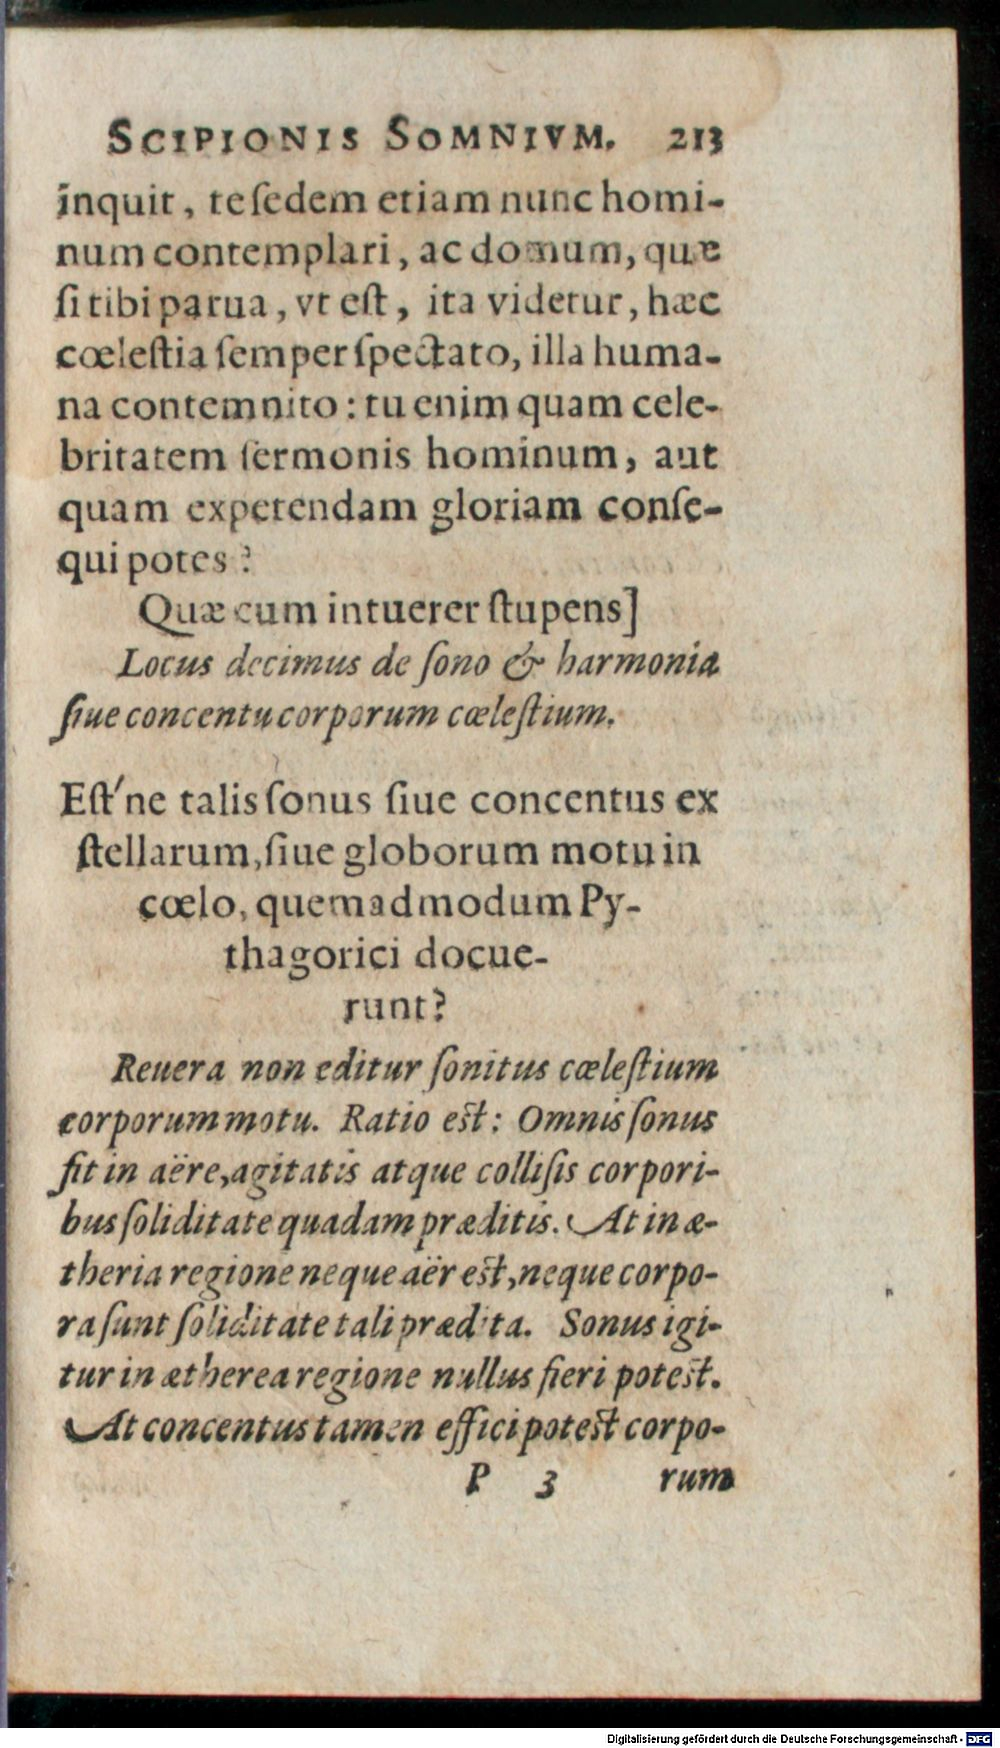 SCIPIONIS SOMNIVM. 213
inquit, te ſedem etiam nunc homi-
num contemplari, ac domum, quæ
ſi tibi parua, vt eſt, ita videtur, hæc
cœleſtia ſemper ſpectato, illa huma-
na contemnito: tu enim quam cele-
britatem ſermonis hominum, aut
quam expetendam gloriam conſe-
qui potes?
Quæ cum intuerer ſtupens]
Locus decimus de ſono & harmonia
ſiue concentu corporum cœleſtium.
Eſt'ne talis ſonus ſiue concentus ex
ſtellarum, ſiue globorum motu in
cœlo, quemadmodum Py-
thagorici docue-
runt?
Reuera non editur ſonitus cæleſtium
corporum motu. Ratio eſt: Omnis ſonus
fit in aëre, agitatis atque colliſis corpori-
bus ſoliditate quadam præditis. At in æ-
theria regione neque aër eſt, neque corpo-
ra ſunt ſoliditate tali prædita. Sonus igi-
tur in ætherea regione nullus fieri poteſt.
At concentus tamen effici poteſt corpo-
P 3 rum
Digitalisierung gefördert durch die Deutsche Forschungsgemeinschaft - DFG